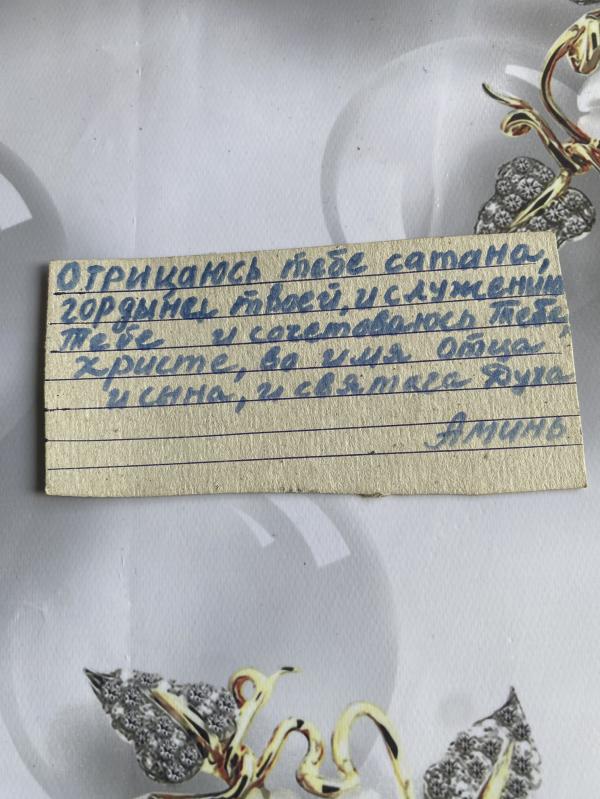 Отрицаюсь тебе сатана,
гордыне твоей, и служению
тебе и сочетоваюсь Тебе,
христе, во имя отца
и сына, и святага Духа
Аминь